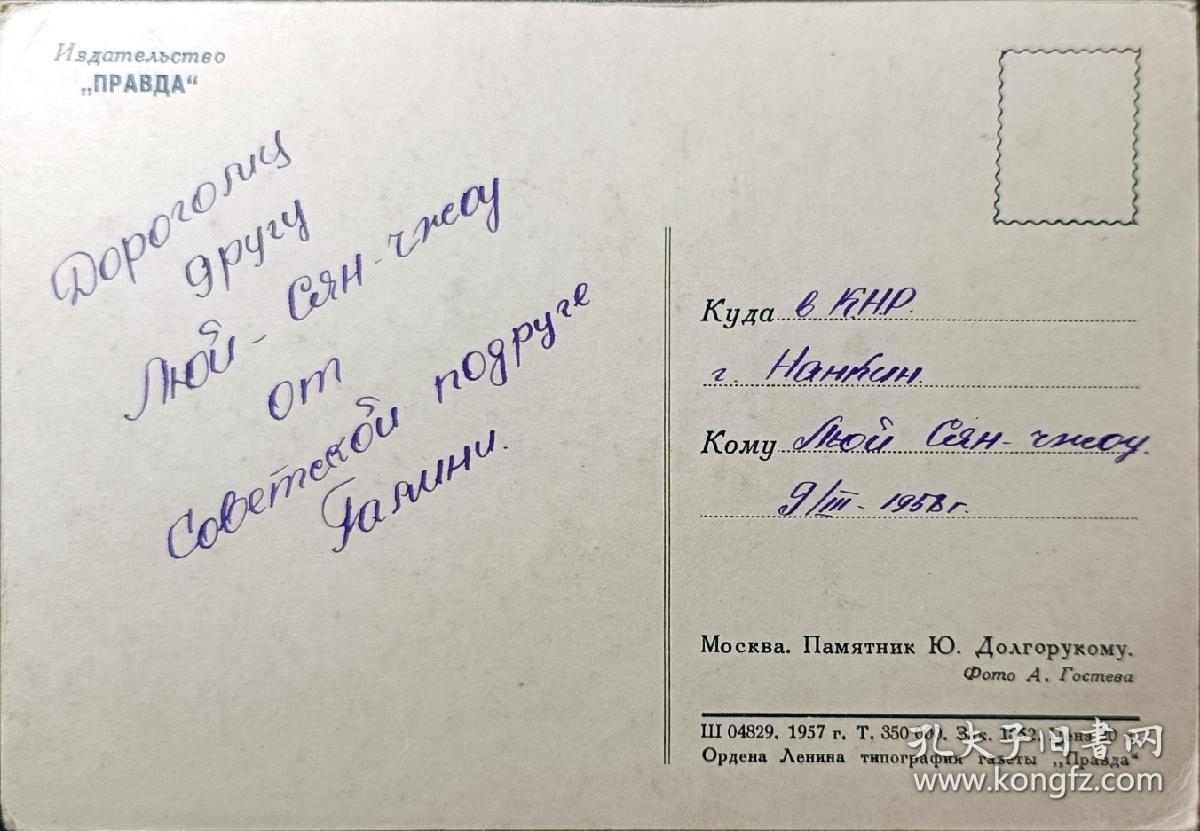 Издательство
„ПРАВДА“
Дорогому
другу
Люй - Сян - чжоу
от
Советской подруге
Галины.
Куда в КНР.
г. Нанкин.
Кому Люй Сян - чжоу.
9/III - 1958 г.
Москва. Памятник Ю. Долгорукому.
Фото А. Гостева
Ш 04829. 1957 г. Т. 350 000. Зак.
Ордена Ленина типография газеты „Правда“
孔夫子旧书网
www.kongfz.com